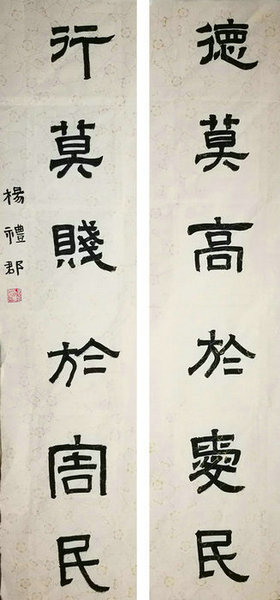 德莫高於愛民
行莫賤於害民
楊禮郡